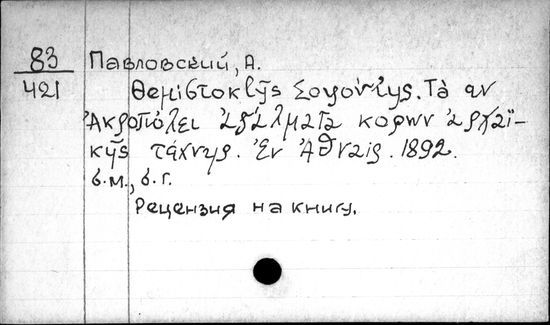 83 Павловский, А.
421 Θεμιστοκλῆς Σοφούλης. Τὰ αν
Ἀκροπόλει ἀγάλματα κορων ἀρχαϊ-
κῆς τάχνης. Ἐν Ἀθναις. 1892.
б.м., б.г.
Рецензия на книгу.